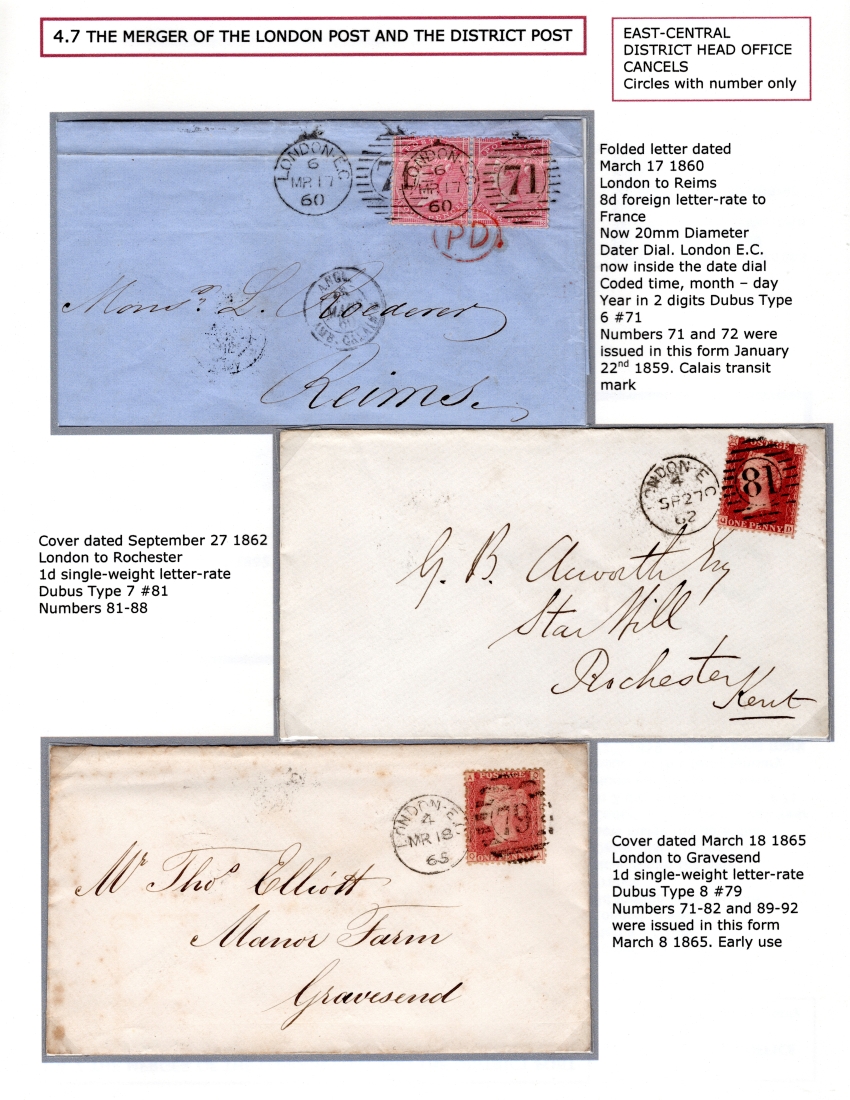 4.7 THE MERGER OF THE LONDON POST AND THE DISTRICT POST
EAST-CENTRAL
DISTRICT HEAD OFFICE
CANCELS
Circles with number only
LONDON·E.C
6
MR 17
60
71
LONDON·E.C
6
MR 17
60
71
PD
Folded letter dated
March 17 1860
London to Reims
8d foreign letter-rate to
France
Now 20mm Diameter
Dater Dial. London E.C.
now inside the date dial
Coded time, month – day
Year in 2 digits Dubus Type
6 #71
Numbers 71 and 72 were
issued in this form January
22nd 1859. Calais transit
mark
ANGL.
AMB. CALAIS
Monsr L. Roederer
Reims.
LONDON·E.C
4
SP 27
62
81
POSTAGE
ONE PENNY
D
Cover dated September 27 1862
London to Rochester
1d single-weight letter-rate
Dubus Type 7 #81
Numbers 81-88
G. B. Acworth Esq
Star Hill
Rochester
Kent
LONDON·E.C
4
MR 18
65
79
POSTAGE
Mr Thos Elliott
Manor Farm
Gravesend
Cover dated March 18 1865
London to Gravesend
1d single-weight letter-rate
Dubus Type 8 #79
Numbers 71-82 and 89-92
were issued in this form
March 8 1865. Early use